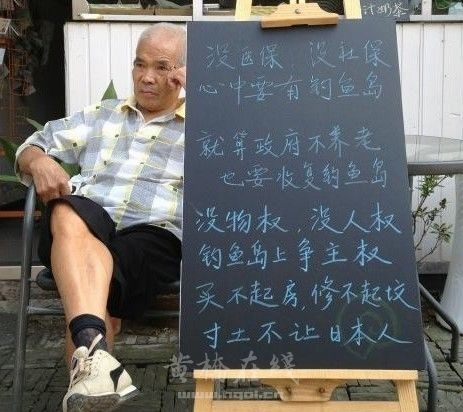 计奶茶
没医保，没社保
心中要有钓鱼岛
就算政府不养老
也要收复钓鱼岛
没物权，没人权
钓鱼岛上争主权
买不起房，修不起坟
寸土不让日本人
黄桥在线
www.hqol.cn